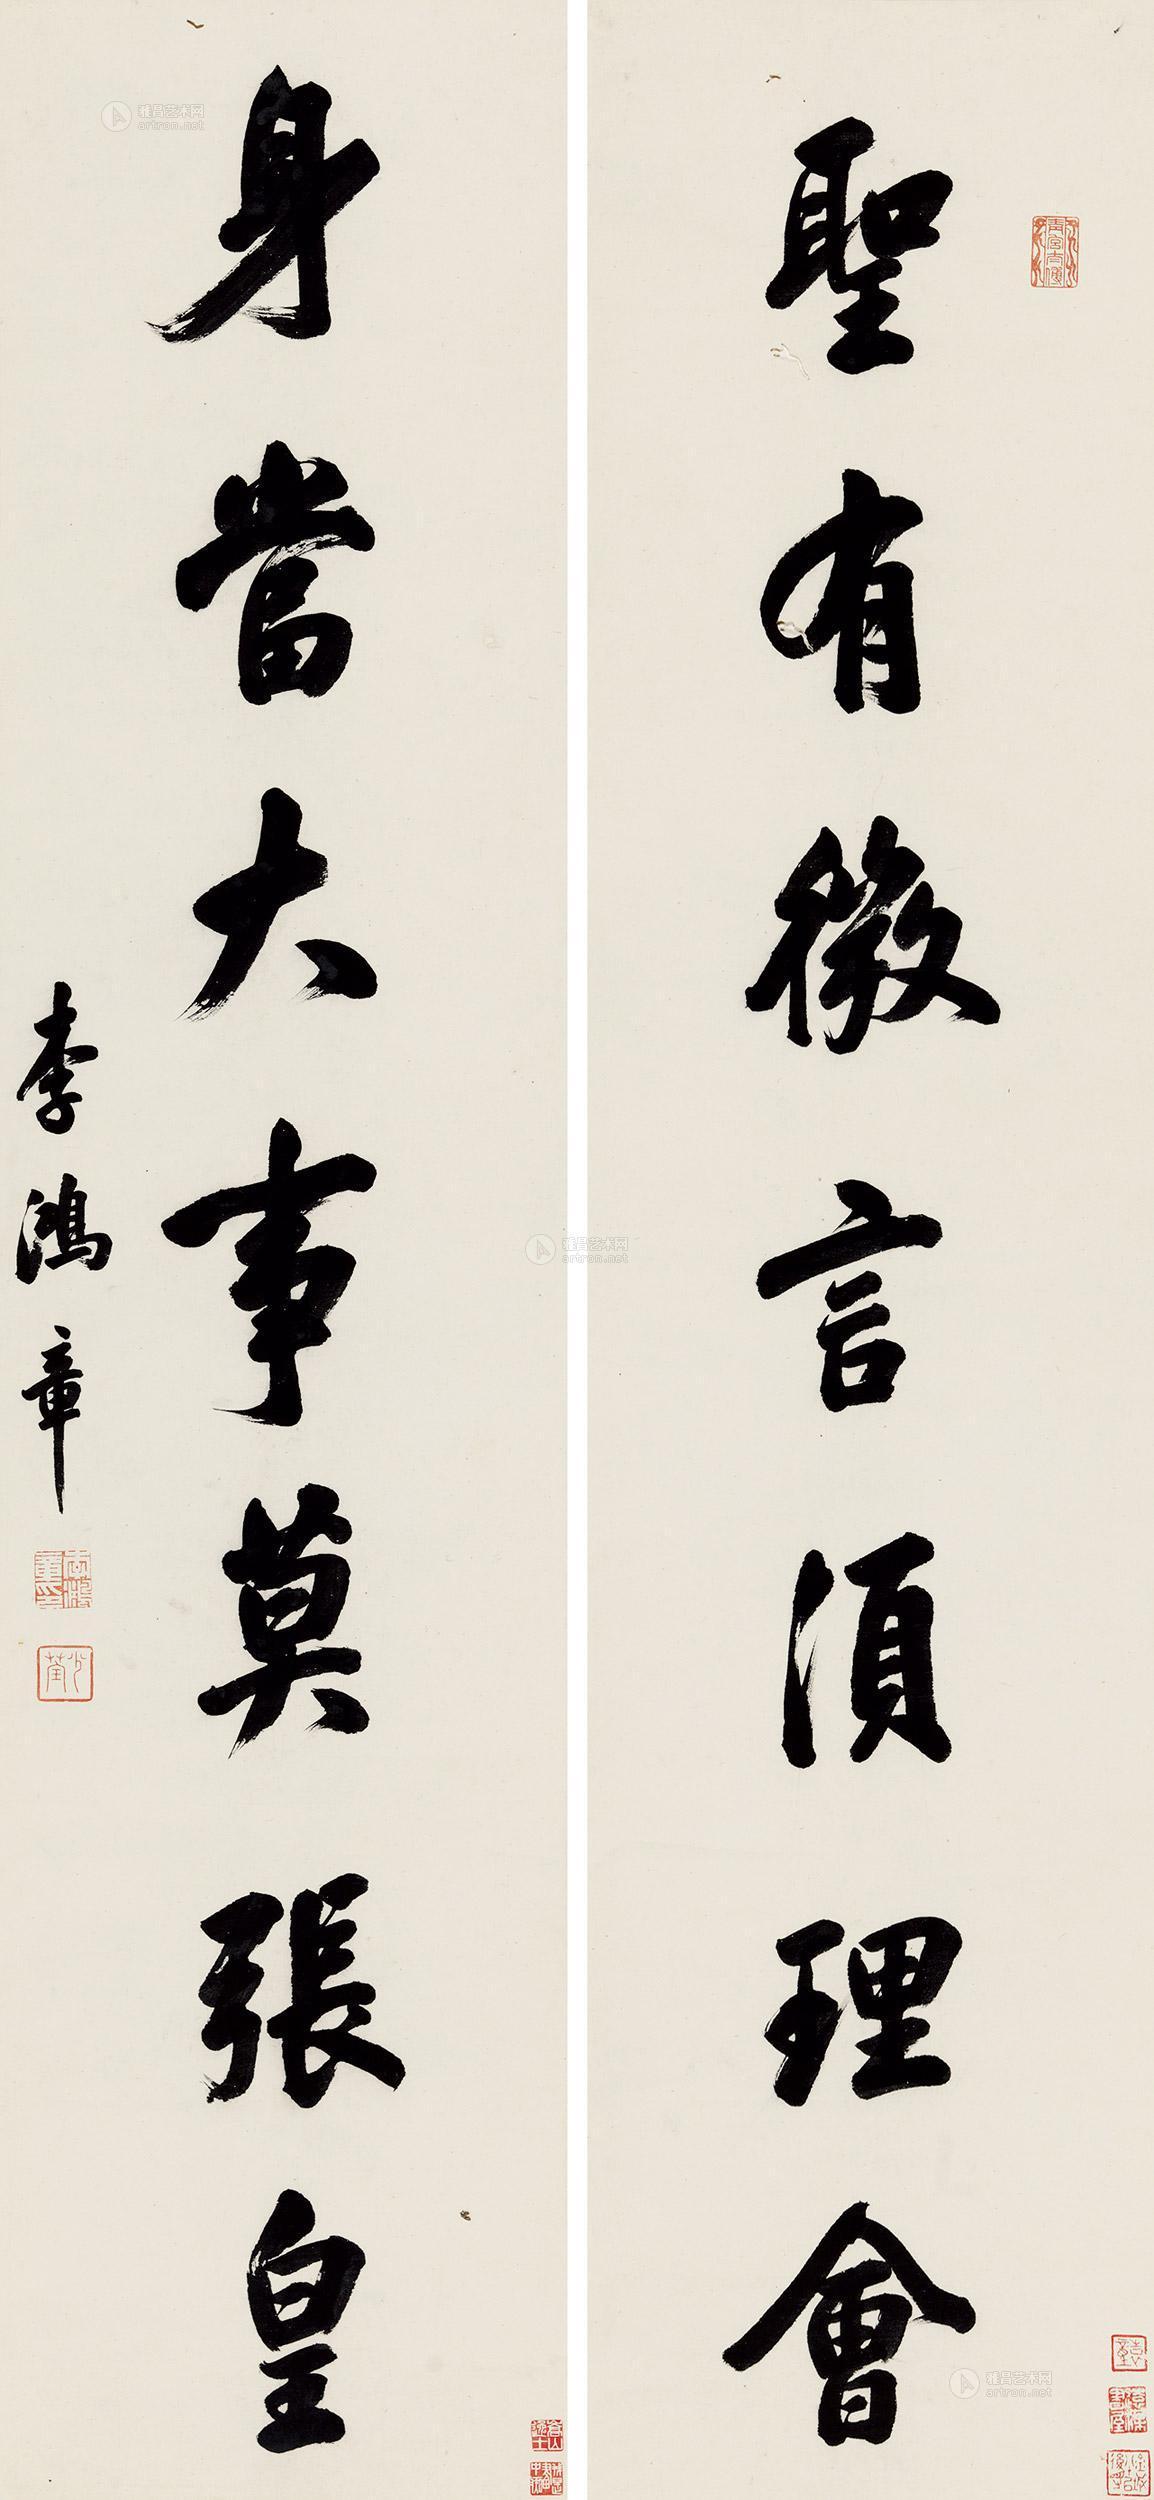 聖有微言須理會
身當大事莫張皇
李鴻章
青宮太傅
李鴻章印
少荃
雅昌艺术网
artron.net
雅昌艺术网
artron.net
雅昌艺术网
artron.net